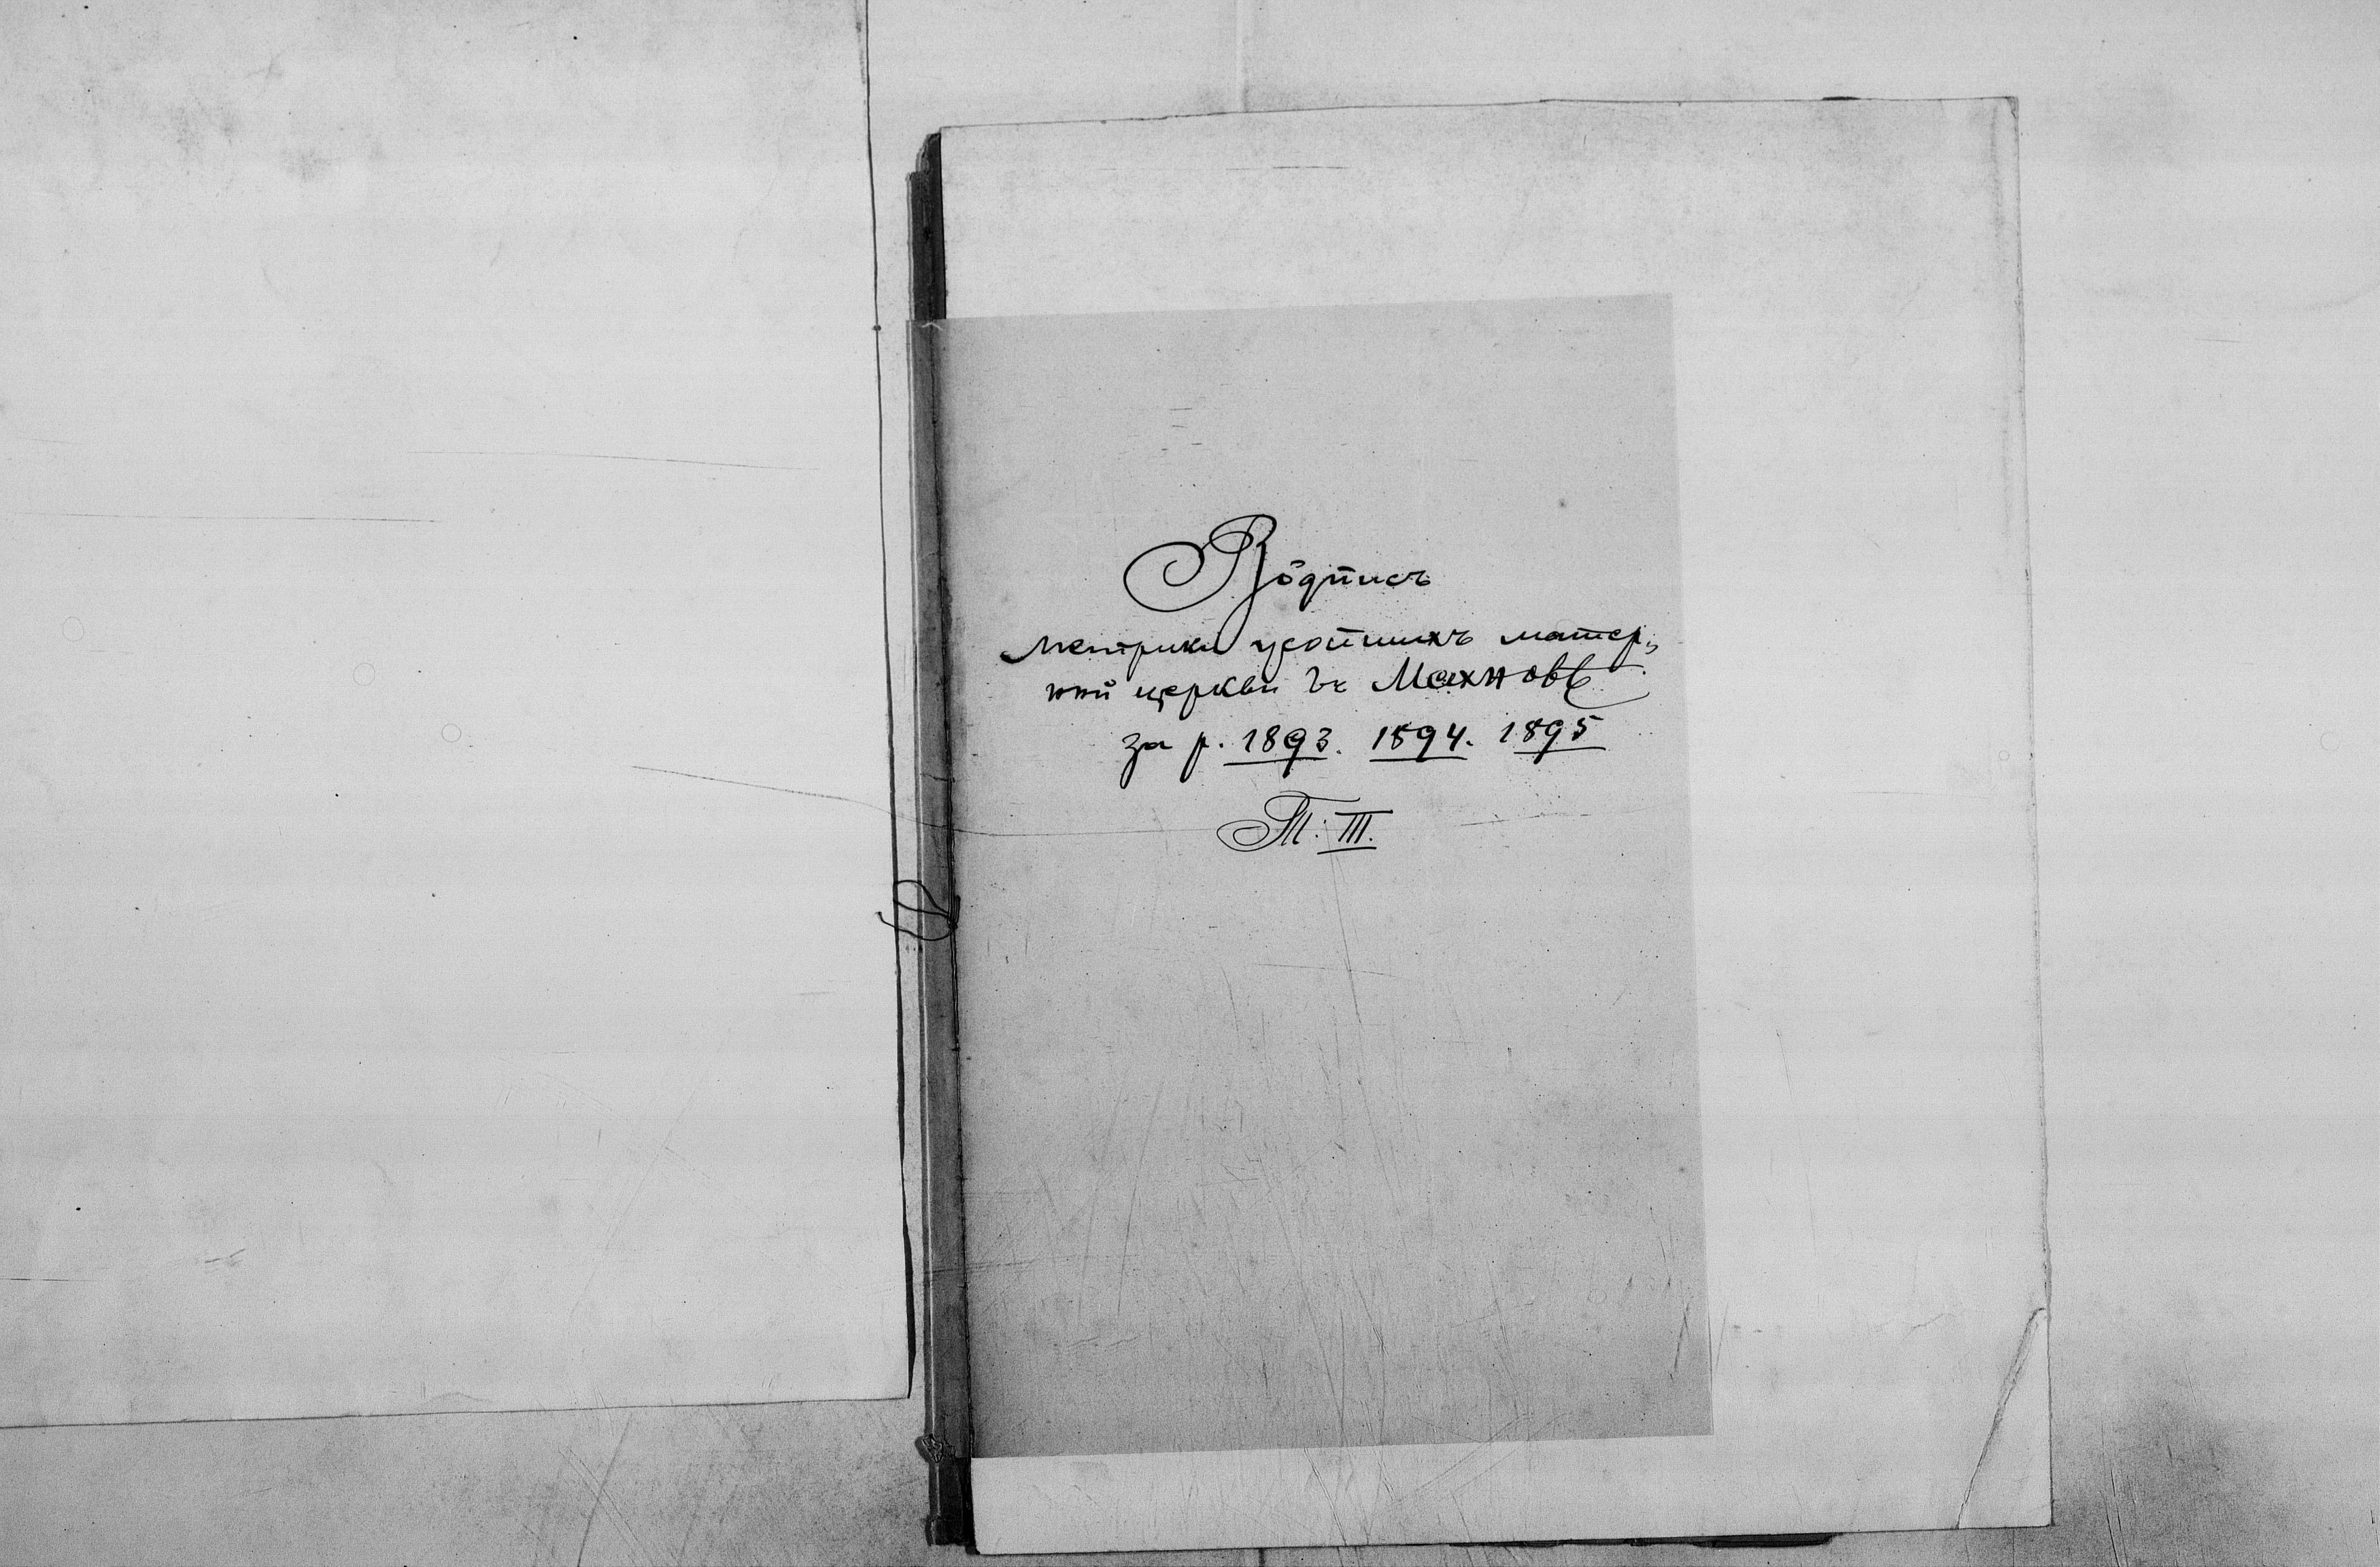 Водпись
метрики усопшихъ матер„
ной церкви въ Махновѣ
за р. 1893. 1894. 1895
Т. III.